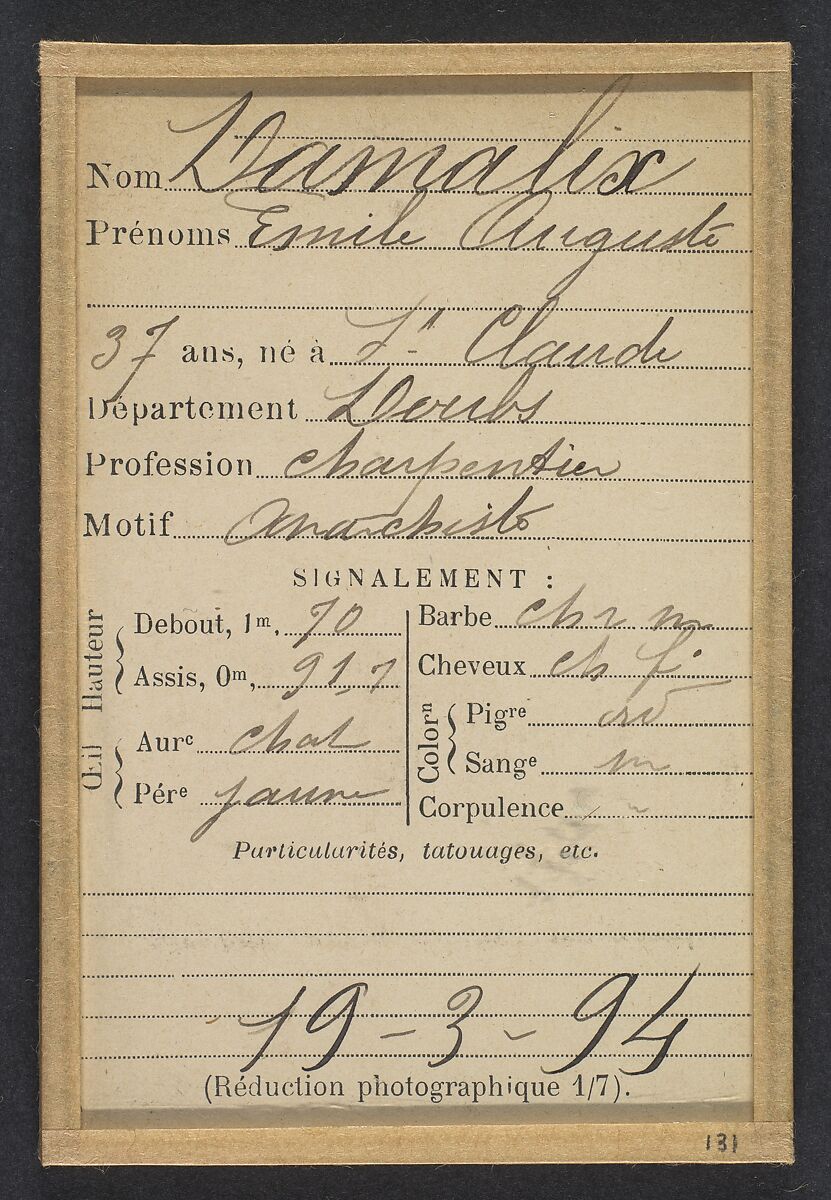 Nom Damalix
Prénoms Emile Auguste
37 ans, né à St Claude
Département Doubs
Profession charpentier
Motif anarchiste
SIGNALEMENT :
Hauteur
Debout, 1m, 70
Assis, 0m, 91,7
Œil
Aure chat
Pére jaune
Barbe ch r m
Cheveux ch f.
Colorn
Pigre
Sange m
Corpulence
Particularités, tatouages, etc.
19-3-94
(Réduction photographique 1/7).
131